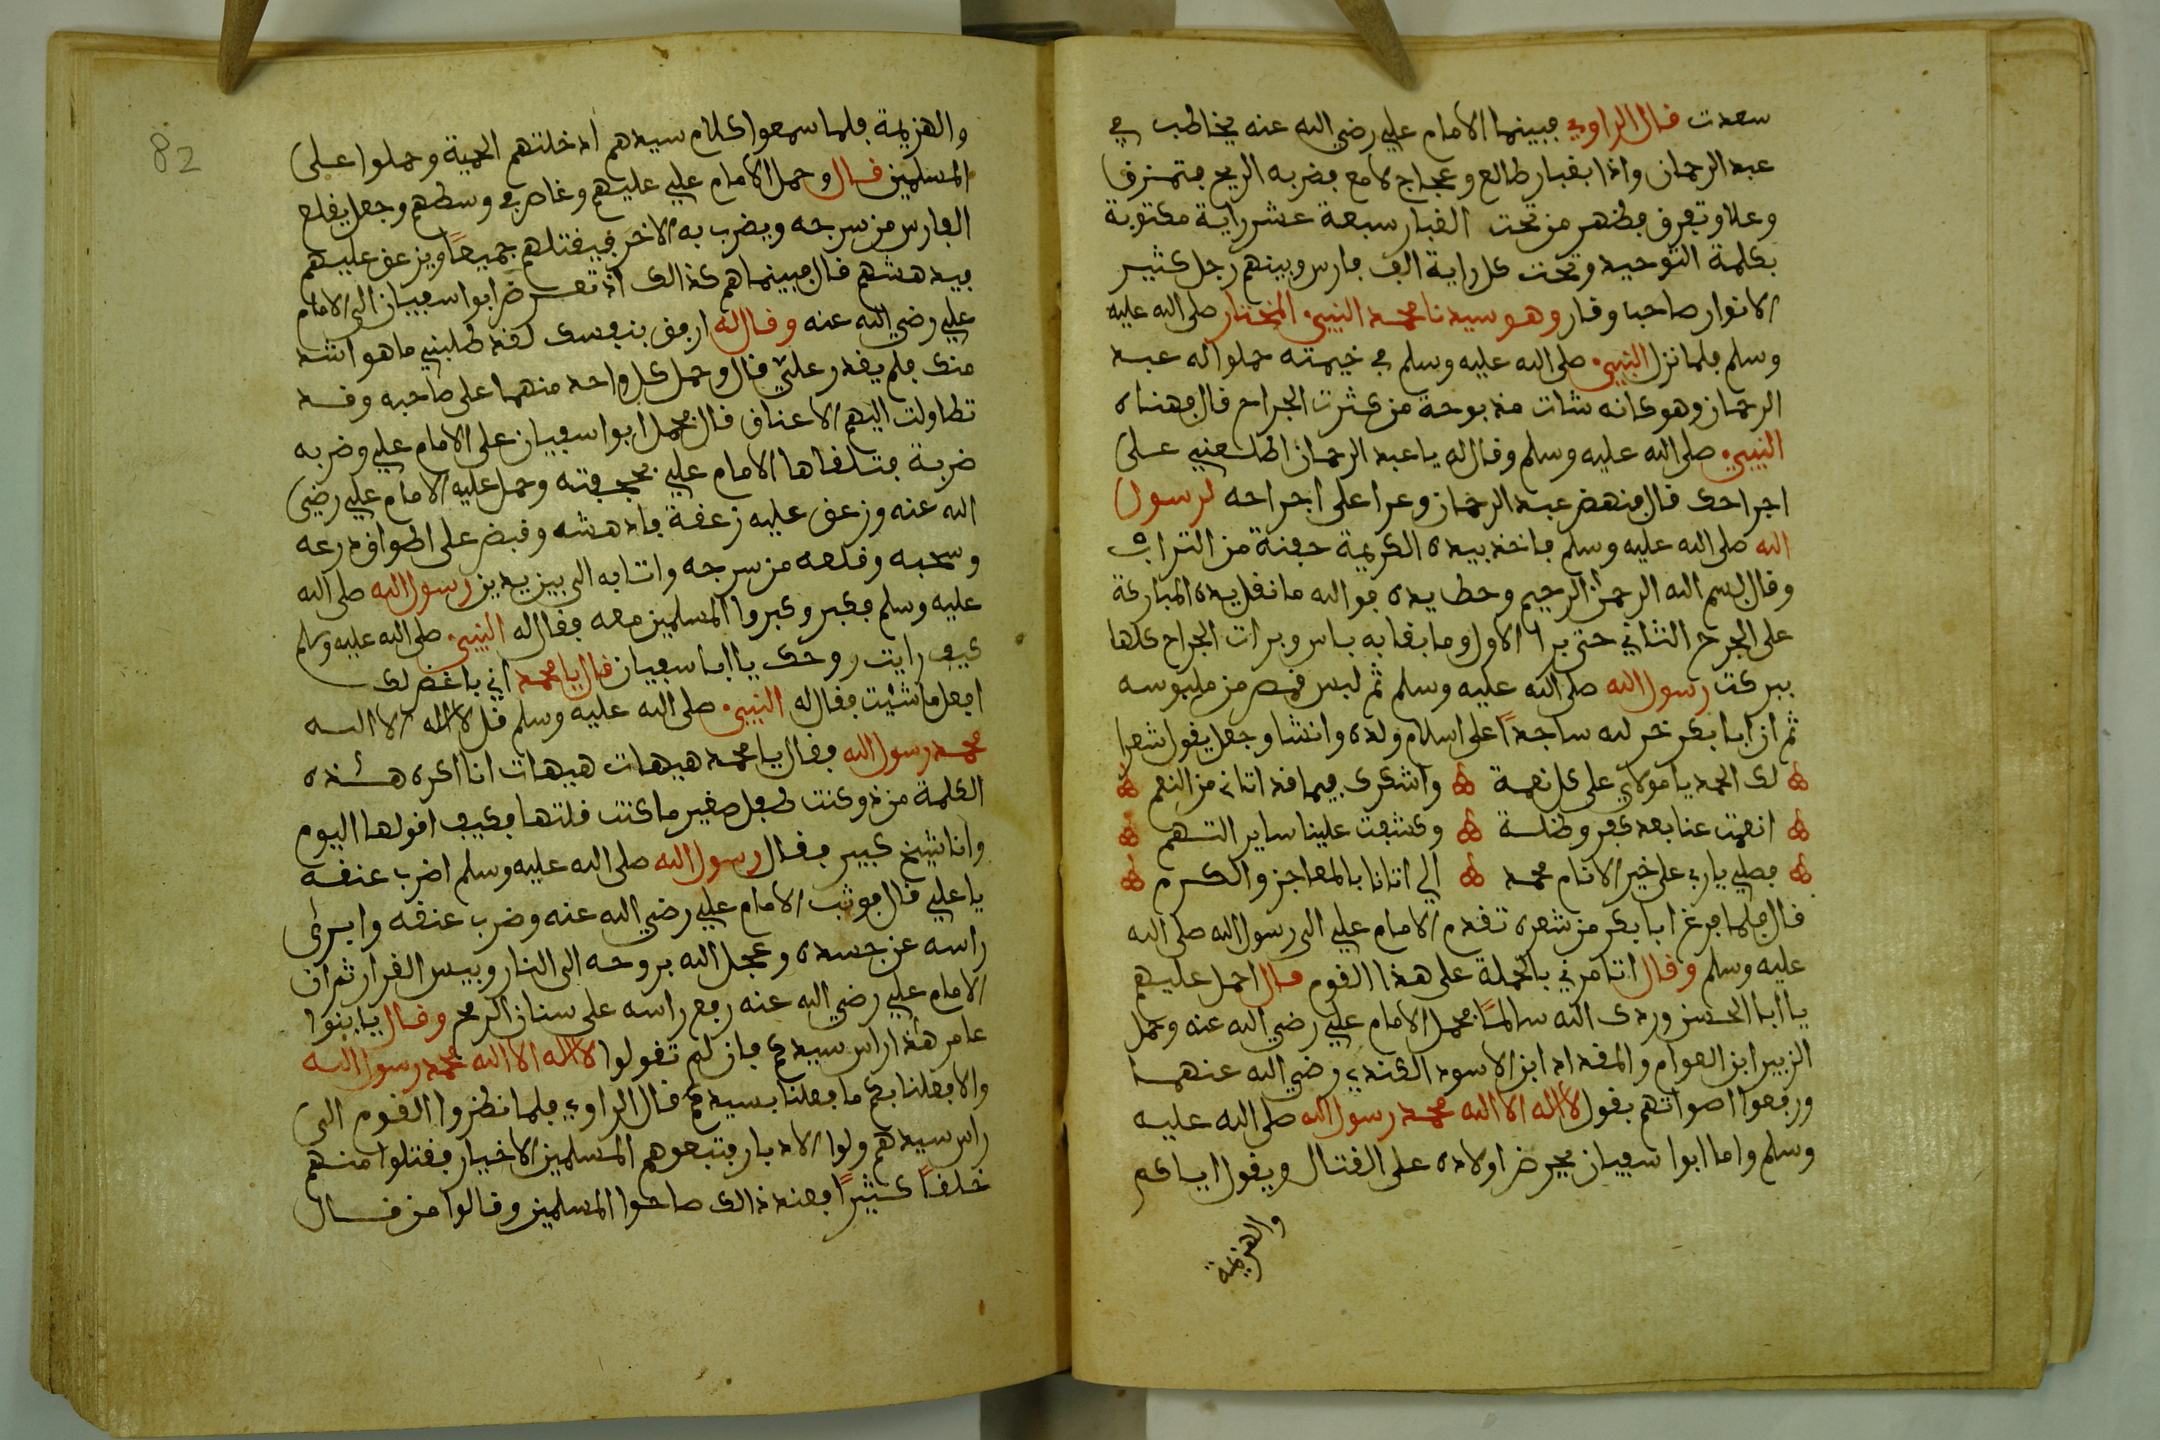 سعدت قال الراوي فبينما الامام علي رضي الله عنه يخاطب في
عبد الرحمان واذا بغبار طالع وعجاج لامع فضربه الريح فتمزق
وعلا وتعرف فظهر من تحت الغبار سبعة عشر راية مكتوبة
بكلمة التوحيد وتحت كل راية الف فارس وبينهم رجل كثير
الانوار صاحبا وقار وهو سيدنا محمد النبيء المختار صلى الله عليه
وسلم فلما نزل النبيء صلى الله عليه وسلم في خيمته حملوا له عبد
الرحمان وهو كانه شات مذبوحة من كثرت الجراح قال فهناه
النبيء صلى الله عليه وسلم وقال له يا عبد الرحمان اطلعني على
اجراحك قال فنهض عبد الرحمان وعرا على اجراحه لرسول
الله صلى الله عليه وسلم فاخذ بيده الكريمة حفنة من التراب
وقال بسم الله الرحمن الرحيم وحط يده فو الله ما نقل يده المباركة
على الجرح الثاني حتى برا الاول وما بقا به باس وبرات الجراح كلها
ببركت رسول الله صلى الله عليه وسلم ثم لبس قمص من ملبوسه
ثم ان ابا بكر خر لله ساجدا على اسلام ولده وانشا وجعل يقول شعرا
لك الحمد يا مولاي على كل نعمة واشكرك فيما قد اتاني من النعم
انعمت عنا بعد كفر وظلمة وكشفت علينا ساير التهم
فصلي يا ربي على خير الانام محمد الي اتانا بالمعاجز والكرم
قال فلما فرغ ابا بكر من شعره تقدم الامام علي الى رسول الله صلى الله
عليه وسلم وقال اتامرني بالحملة على هذا القوم قال احمل عليهم
يا ابا الحسن وردك الله سالما فحمل الامام علي رضي الله عنه وحمل
الزبير ابن العوام والمقداد ابن الاسود الكندي رضي الله عنهما
ورفعوا اصواتهم بقول لا اله الا الله محمد رسول الله صلى الله عليه
وسلم واما ابوا سفيان يحرض اولاده على القتال ويقول اياكم
والهزيمة
82
والهزيمة فلما سمعوا كلام سيدهم ادخلتهم الحمية وحملوا على
المسلمين قال وحمل الامام علي عليهم وغاص في وسطهم وجعل يقلع
الفارس من سرجه ويضرب به الاخر فيقتلهم جميعا ويزعق عليهم
فيدهشهم قال فبينما هم كذالك اذ تعرض ابوا سفيان الى الامام
علي رضي الله عنه وقال له ارفق بنفسك لقد طلبني ما هو اشد
منك فلم يقدر علي قال وحمل كل واحد منهما على صاحبه وقد
تطاولت اليهم الاعناق قال فحمل ابوا سفيان على الامام علي وضربه
ضربة فتلقاها الامام علي بحجفته وحمل عليه الامام علي رضي
الله عنه وزعق عليه زعقة فادهشه وقبض على اطواق درعه
وسحبه وقلعه من سرجه واتا به الى بين يدين رسول الله صلى الله
عليه وسلم فكبر وكبروا المسلمين معه فقال له النبيء صلى الله عليه وسلم
كيف رايت روحك يا ابا سفيان قال يا محمد اني باغض لك
افعل ما شيت فقال له النبيء صلى الله عليه وسلم قل لا اله الا الله
محمد رسول الله فقال يا محمد هيهات هيهات انا اكره هذه
الكلمة من ذو كنت طفل صغير ما كنت قلتها فكيف اقولها اليوم
وانا شيخ كبير فقال رسول الله صلى الله عليه وسلم اضرب عنقه
يا علي قال فوثب الامام علي رضي الله عنه وضرب عنقه وابرى
راسه عن جسده وعجل الله بروحه الى النار وبيس القرار ثم ان
الامام علي رضي الله عنه رفع راسه على سنان الرمح وقال يا بنوا
عامر هذا راس سيدكم فان لم تقولوا لا اله الا الله محمد رسول الله
والا فعلنا بكم ما فعلنا بسيدكم قال الراوي فلما نظروا القوم الى
راس سيدهم ولوا الادبار فتبعوهم المسلمين الاخيار فقتلوا منهم
خلقا كثيرا فعند ذالك صاحوا المسلمين وقالوا من قال